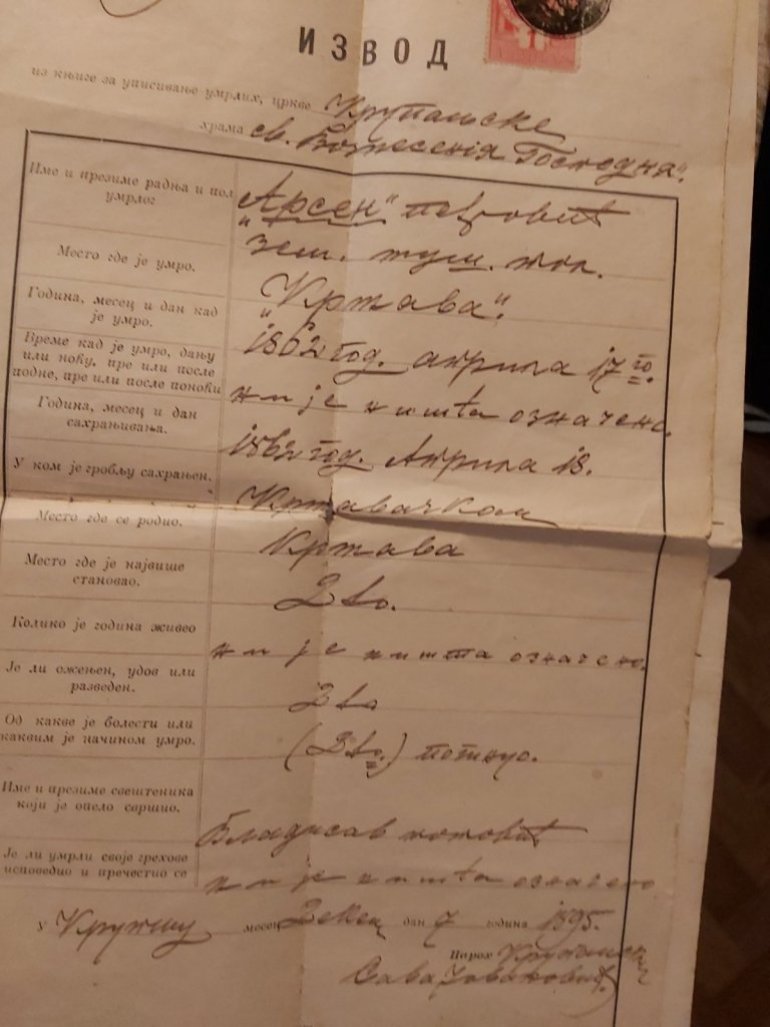 ИЗВОД
из књиге за уписивање умрлих, цркве Крупањске
храма св. Вознесенія Господня".
Име и презиме радња и пол умрлог
„Арсен" Петровић
зем.
Место где је умро.
„Кржава".
Година, месец и дан кад је умро.
1862 год. априла 17го.
Време кад је умро, дању или ноћу, пре или после подне, пре или после поноћи
није ништа означено.
Година, месец и дан сахрањивања.
1862 год. Априла 18.
У ком је гробљу сахрањен.
Кржавачком
Место где се родио.
Кржава
Место где је највише становао.
Колико је година живео
није ништа означено.
Је ли ожењен, удов или разведен.
Од какве је болести или каквим је начином умро.
Име и презиме свештеника који је опело свршио.
Владисав Поповић
Је ли умрли своје грехове исповедио и причестио се
није ништа означено
У Крупњу месец Декем. дан 7 година 1895.
Парох Крупањски
Сава Јовановић